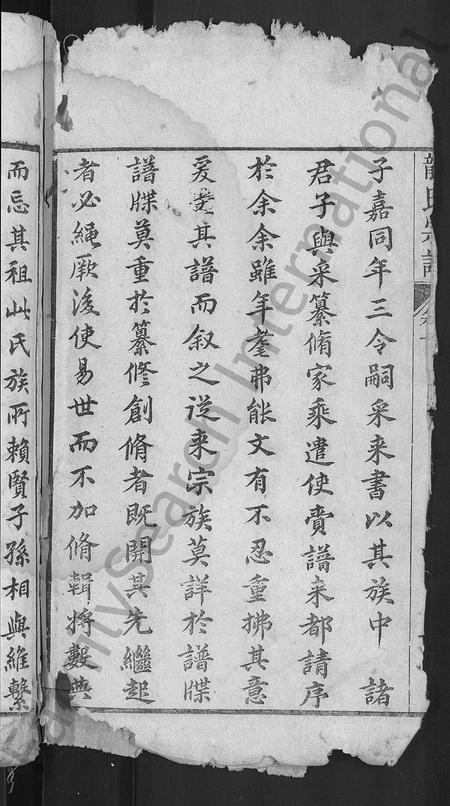 龍氏宗譜 卷一
子嘉同年三令嗣采来書以其族中 諸
君子與采纂脩家乘遣使賫譜来都請序
於余余雖年耄弗能文有不忍重拂其意
爰其譜而叙之送来宗族莫詳於譜牒
譜牒莫重於纂修創脩者既開其先繼起
者必繩厥後使易世而不加脩輯將數典
而忘其祖此氏族所賴賢子孫相與維繫
FamilySearch International